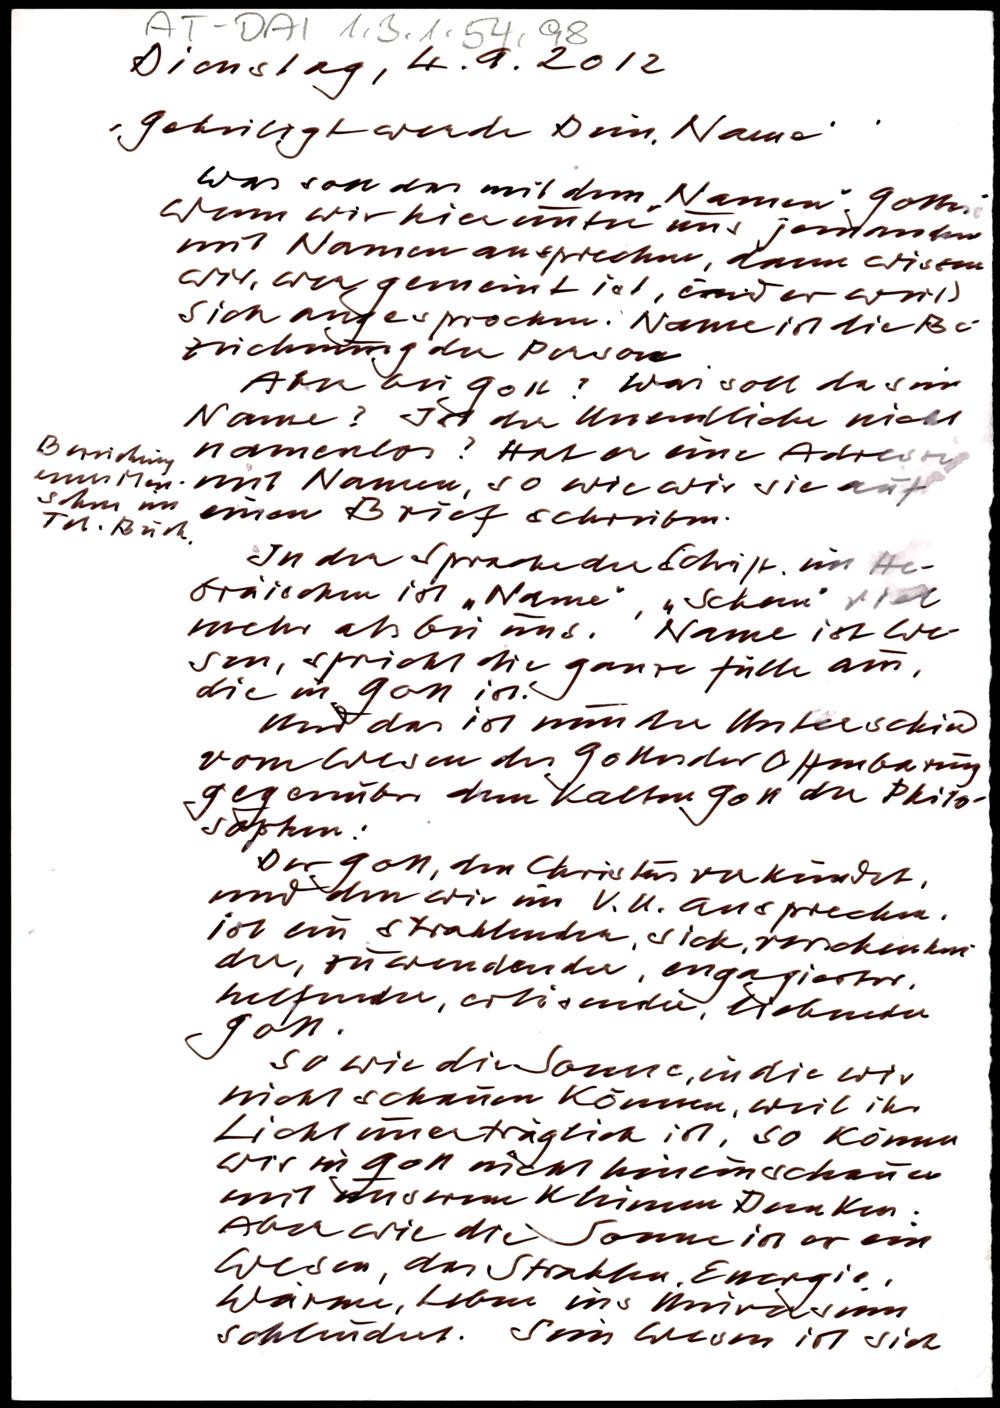 AT-DAI 1.3.1.54.98
Dienstag, 4.9.2012
"Geheiligt werde Dein Name"
Was soll das mit dem "Namen" Gottes?
Wenn wir hier unter uns jemanden
mit Namen ansprechen, dann wissen
wir, wer gemeint ist, und er weiß
sich angesprochen. Name ist die Be-
zeichnung der Person
Aber bei Gott? Was soll da sein
Name? Ist der Unendliche nicht
namenlos? Hat er eine Adresse
mit Namen, so wie wir sie auf
einen Brief schreiben.
Bezeichnung
eines Men-
schen im
Tel. Buch.
In der Sprache der Schrift, im He-
bräischen ist "Name", "Schem" viel
mehr als bei uns. Name ist We-
sen, spricht die ganze Fülle aus,
die in Gott ist.
Und das ist nun der Unterschied
vom Wesen des Gottes der Offenbarung
gegenüber dem kalten Gott der Philo-
sophen:
Der Gott, den Christus verkündet,
und den wir im V.U. ansprechen,
ist ein strahlender, sich verschenken-
der, zuwendender, engagierter,
helfender, erlösender, liebender
Gott.
So wie die Sonne, in die wir
nicht schauen können, weil ihr
Licht unerträglich ist, so können
wir in Gott nicht hineinschauen
mit unserem kleinen Denken.
Aber wie die Sonne ist er ein
Wesen, das Strahlen, Energie,
Wärme, Leben ins Universum
schleudert. Sein Wesen ist sich